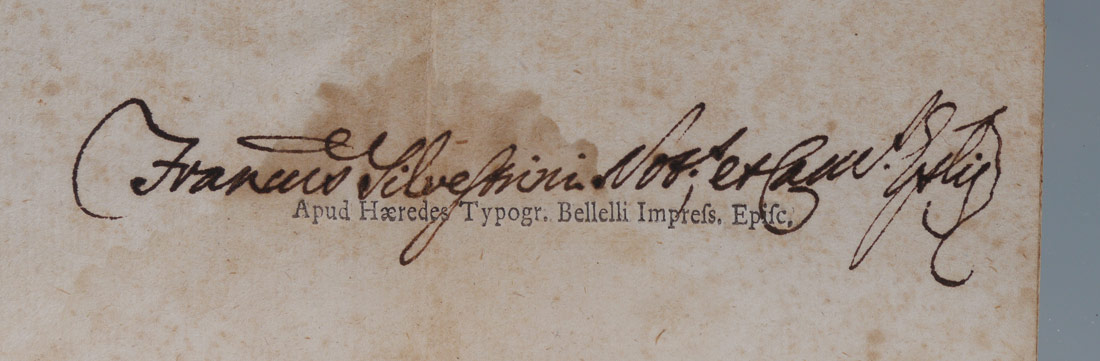 Franc.us Silvestrini Not.s et Canc.s
Apud Hæredes Typogr. Bellelli Impreſs. Epiſc.